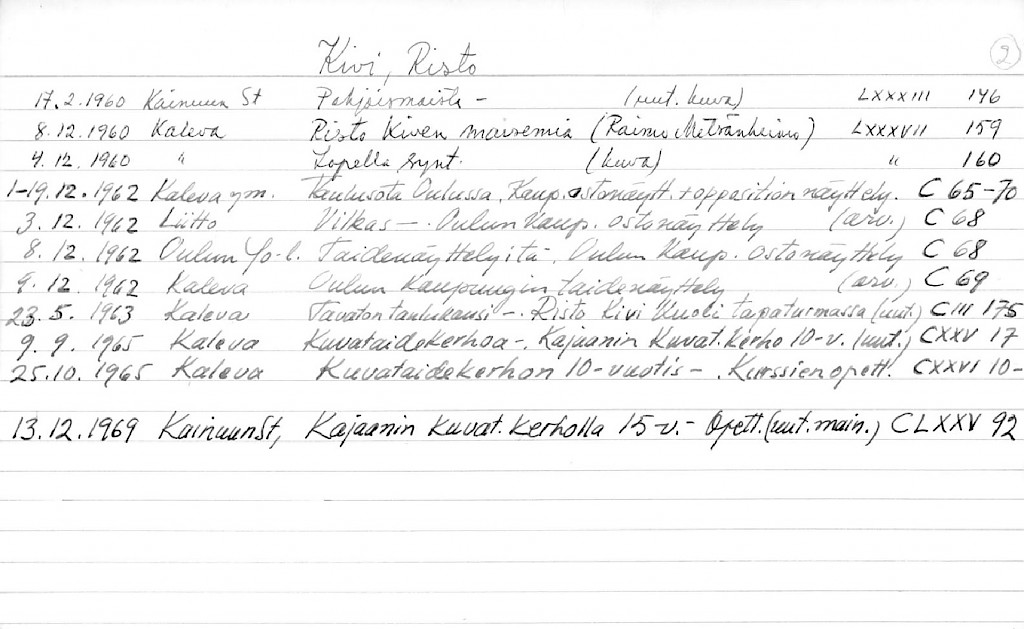 2
Kivi, Risto
17.2.1960 Kainuun St Pohjoismaista - (uut. kuva) LXXXIII 146
8.12.1960 Kaleva Risto Kiven maisemia (Raimo Metsänheimo) LXXXVII 159
4.12.1960 " Lopella synt. (kuva) " 160
1-19.12.1962 Kaleva ym. Taulusota Oulussa, Kaup. ostonäytt. + opposition näyttely. C 65-70
3.12.1962 Liitto Vilkas -. Oulun Kaup. ostonäyttely (arv.) C 68
8.12.1962 Oulun Yo-l. Taidenäyttelyitä, Oulun Kaup. ostonäyttely C 68
9.12.1962 Kaleva Oulun Kaupungin taidenäyttely (arv.) C 69
23.5.1963 Kaleva Tavaton taulukausi -. Risto Kivi kuoli tapaturmassa (uut.) CIII 175
9.9.1965 Kaleva Kuvataidekerhoa -. Kajaanin Kuvat. Kerho 10-v. (uut.) CXXV 17
25.10.1965 Kaleva Kuvataidekerhon 10-vuotis -. Kurssien opett. CXXVI 10-
13.12.1969 KainuunSt, Kajaanin kuvat. kerholla 15-v.- Opett. (uut. main.) CLXXV 92